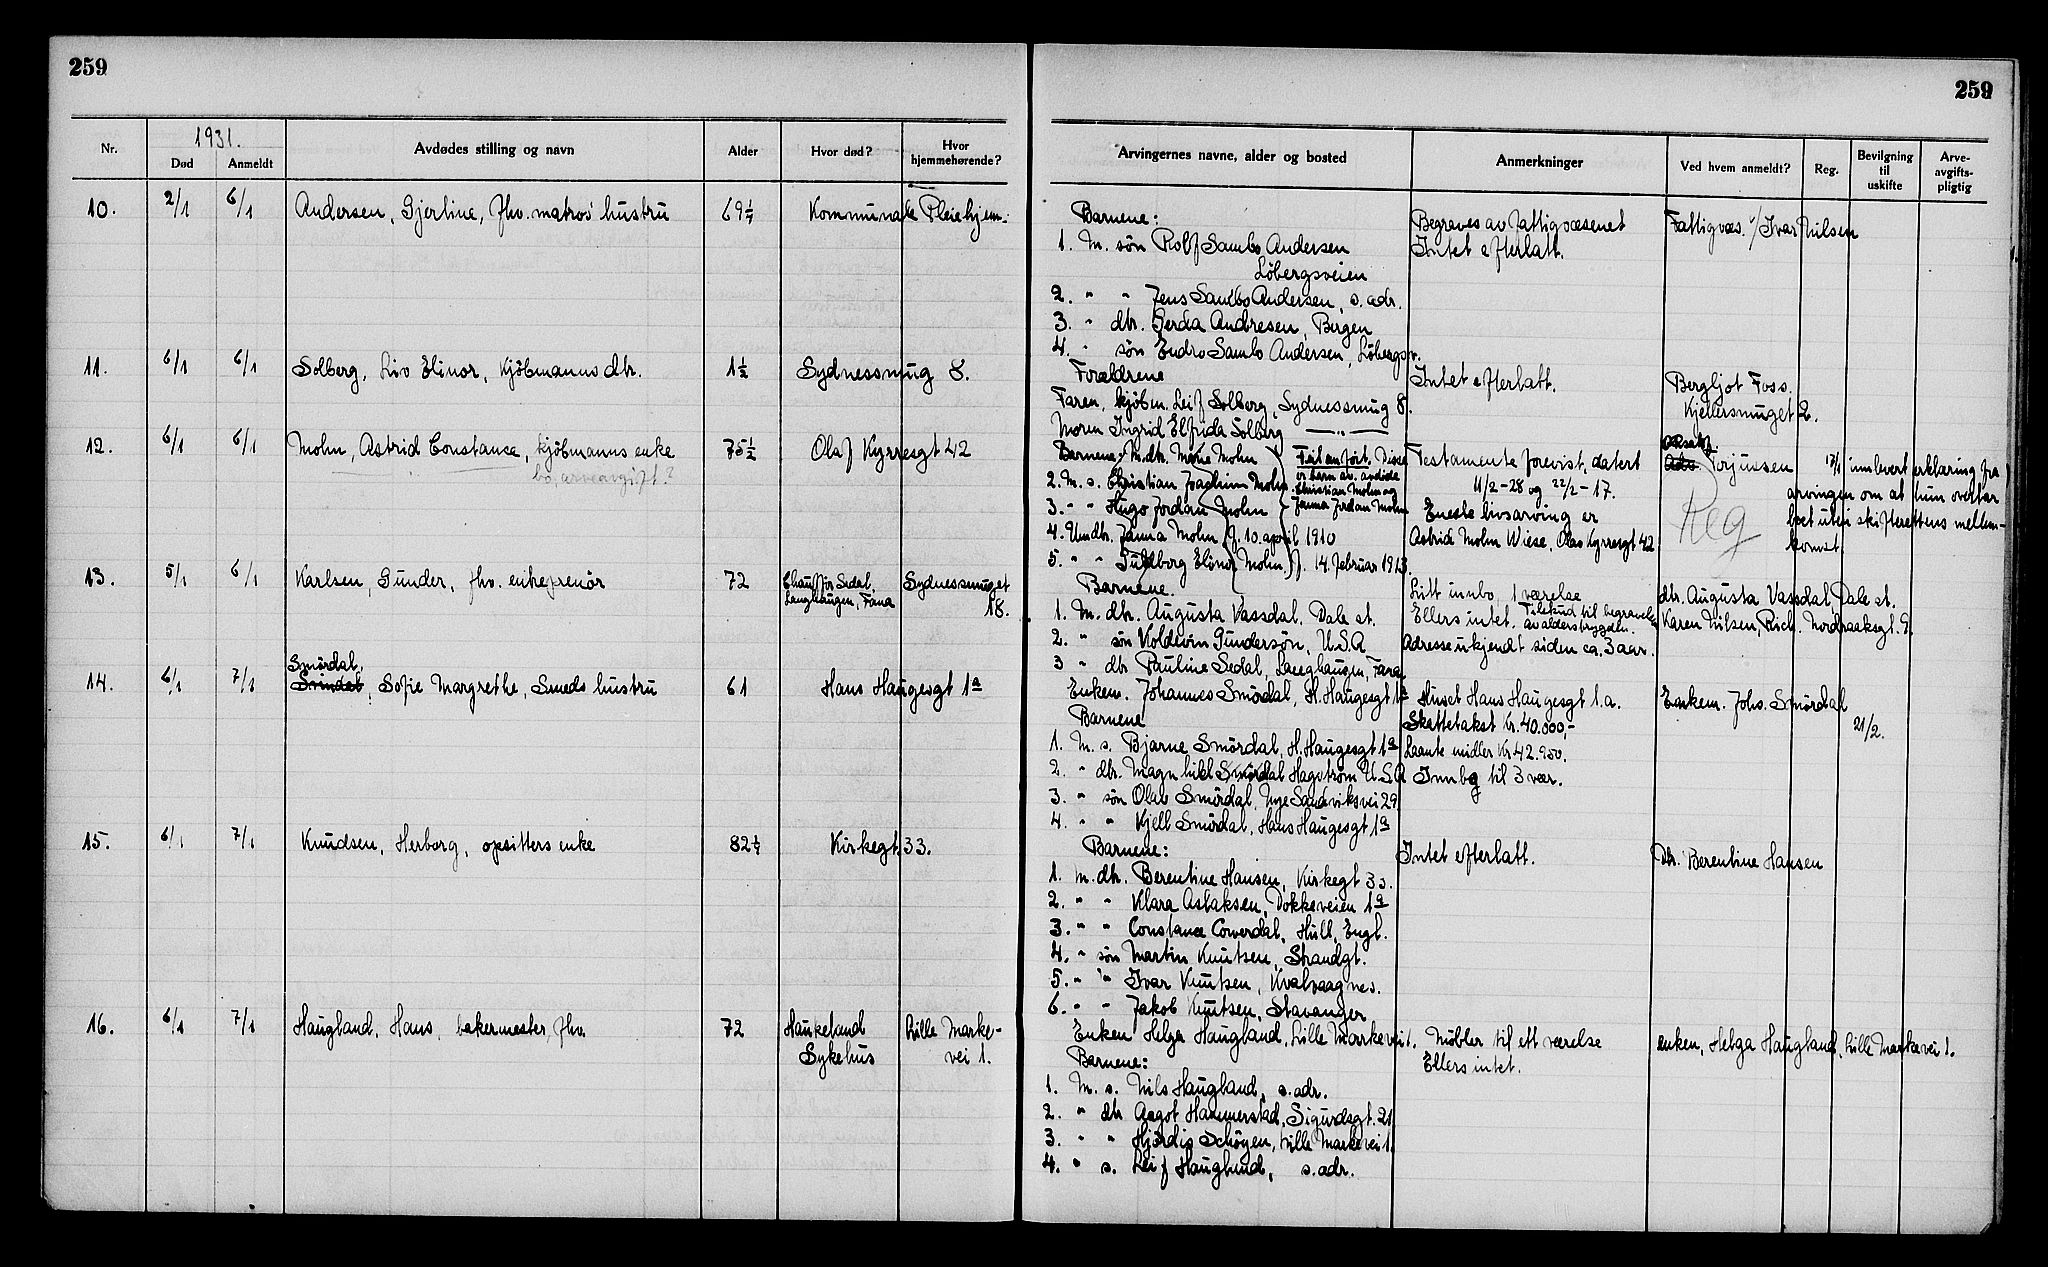 259
Nr.
1931.
Død
Anmeldt
Avdødes stilling og navn
Alder
Hvor død?
Hvor hjemmehørende?
10. 2/1 6/1 Andersen, Gjertine, fhv. matros' hustru 69¼ Kommunale Pleiehjem.
11. 6/1 6/1 Solberg, Liv Elinor, Kjöbmanns dtr. 1½ Sydnessmug 8.
12. 6/1 6/1 Mohn, Astrid Constance, kjöbmanns enke 75½ Olaf Kyrresgt 42
bo, arveavgift?
13. 5/1 6/1 Karlsen, Gunder, fhv. entreprenör 72 Chauffør Sedal, Sydnessmuget
Langhaugen, Fana 18.
Smördal,
14. 6/1 7/1 Svindal, Sofie Margrethe, Smeds hustru 61 Hans Haugesgt 1a
15. 6/1 7/1 Knudsen, Herborg, opsitters enke 82¼ Kirkegt. 33.
16. 6/1 7/1 Haugland, Hans, bakermester, fhv. 72 Haukeland Lille Marke-
Sykehus vei 1.
259
Arvingernes navne, alder og bosted
Anmerkninger
Ved hvem anmeldt?
Reg.
Bevilgning til uskifte
Arve-avgifts-pligtig
Barnene: Begraves av fattigvæsenet Fattigvæs. v/Ivar Nilsen
1. M. sön Rolf Sambo Andersen Intet efterlatt.
Löbergsveien
2. " " Jens Sambo Andersen, s. adr.
3. " dtr. Gerda Andresen, Bergen
4. " sön Endre Sambo Andersen, Löbergsv.
Forældrene Intet efterlatt. Bergljot Foss,
Faren, kjöbm. Leif Solberg, Sydnessmug 8. Kjellersmuget 2.
Moren Ingrid Elfrida Solberg — " —
Barnene: M. dtr. Marie Mohn Feil anfört. Disse Testamente forevist, datert Torjussen 17/1 innlevert erklæring fra
2. M. s. Christian Joachim Mohn er barn av avdøde Christian Mohn og 11/2-28 og 22/2-17. arvingen om at hun overtar
3. " " Hugo Jordan Mohn Janna Jordan Mohn Eneste livsarving er Reg boet uten skifterettens mellem-
4. Umdtr. Janna Mohn f. 10. april 1910 Astrid Mohn Wiese, Olav Kyrresgt 42 komst.
5. " " Guldborg Elinor Mohn f. 14. februar 1913.
Barnene. Litt innbo, 1 værelse dtr. Augusta Vassdal, Dale st.
1. M. dtr. Augusta Vassdal, Dale st. Ellers intet. Tilskud til begravelse av alderstrygden. Karen Nilsen, Rich. Nordraaksgt. 9.
2. " sön Voldemn Gundersön, U.S.A Adresse ukjendt siden ca. 3 aar.
3 " dtr Pauline Sedal, Langhaugen, Fana
Enkem. Johannes Smördal, H. Haugesgt 1a Huset Hans Haugesgt 1.a. Enkem. Johs. Smördal
Barnene Skattetakst Kr. 40.000,- 21/2.
1. M. s. Bjarne Smördal, H. Haugesgt 1a Laante midler Kr 42.950.
2. " dtr. Magnhild Smördal Hagström U.S.A Innbo til 3 vær.
3. " sön Olav Smördal, Nye Sandviksvei 29
4. " " Kjell Smördal, Hans Haugesgt 1a
Barnene: Intet efterlatt. Dtr. Berentine Hansen
1. M. dtr. Berentine Hansen, Kirkegt 33.
2. " " Klara Aslaksen, Dokkeveien 1a
3. " " Constance Cowerdal, Hull, Engl.
4. " sön Martin Knutsen, Strandgt.
5. " " Ivar Knutsen, Kvalvaagnes.
6. " " Jakob Knutsen, Stavanger
Enken Helga Haugland, Lille Markevei 1. Möbler til ett værelse enken, Helga Haugland, Lille Markevei 1.
Barnene: Ellers intet.
1. M. s. Nils Haugland, s. adr.
2. " dtr Aagot Hammerstad, Sigurdsgt. 21
3. " " Hjördis Schöyen, Lille Markevei 1.
4. " s. Leif Haugland, s. adr.